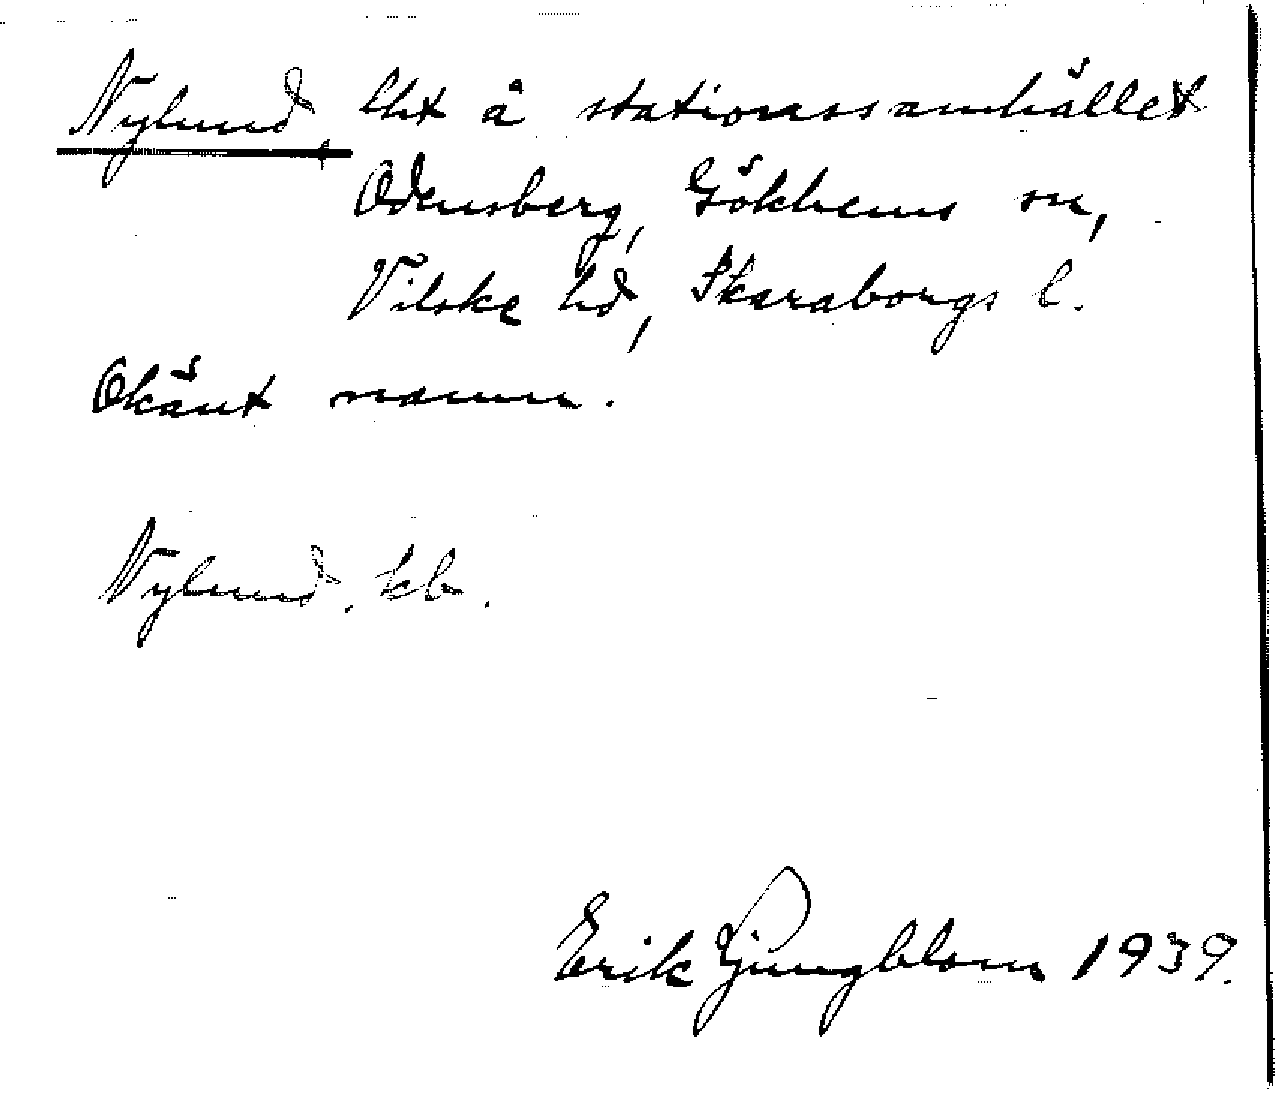 Nylund, lht å stationssamhället
Odensberg, Gökhems sn,
Vilske hd, Skaraborgs l.
Okänt namn.
Nylund. kb.
Erik Ljungblom 1939.